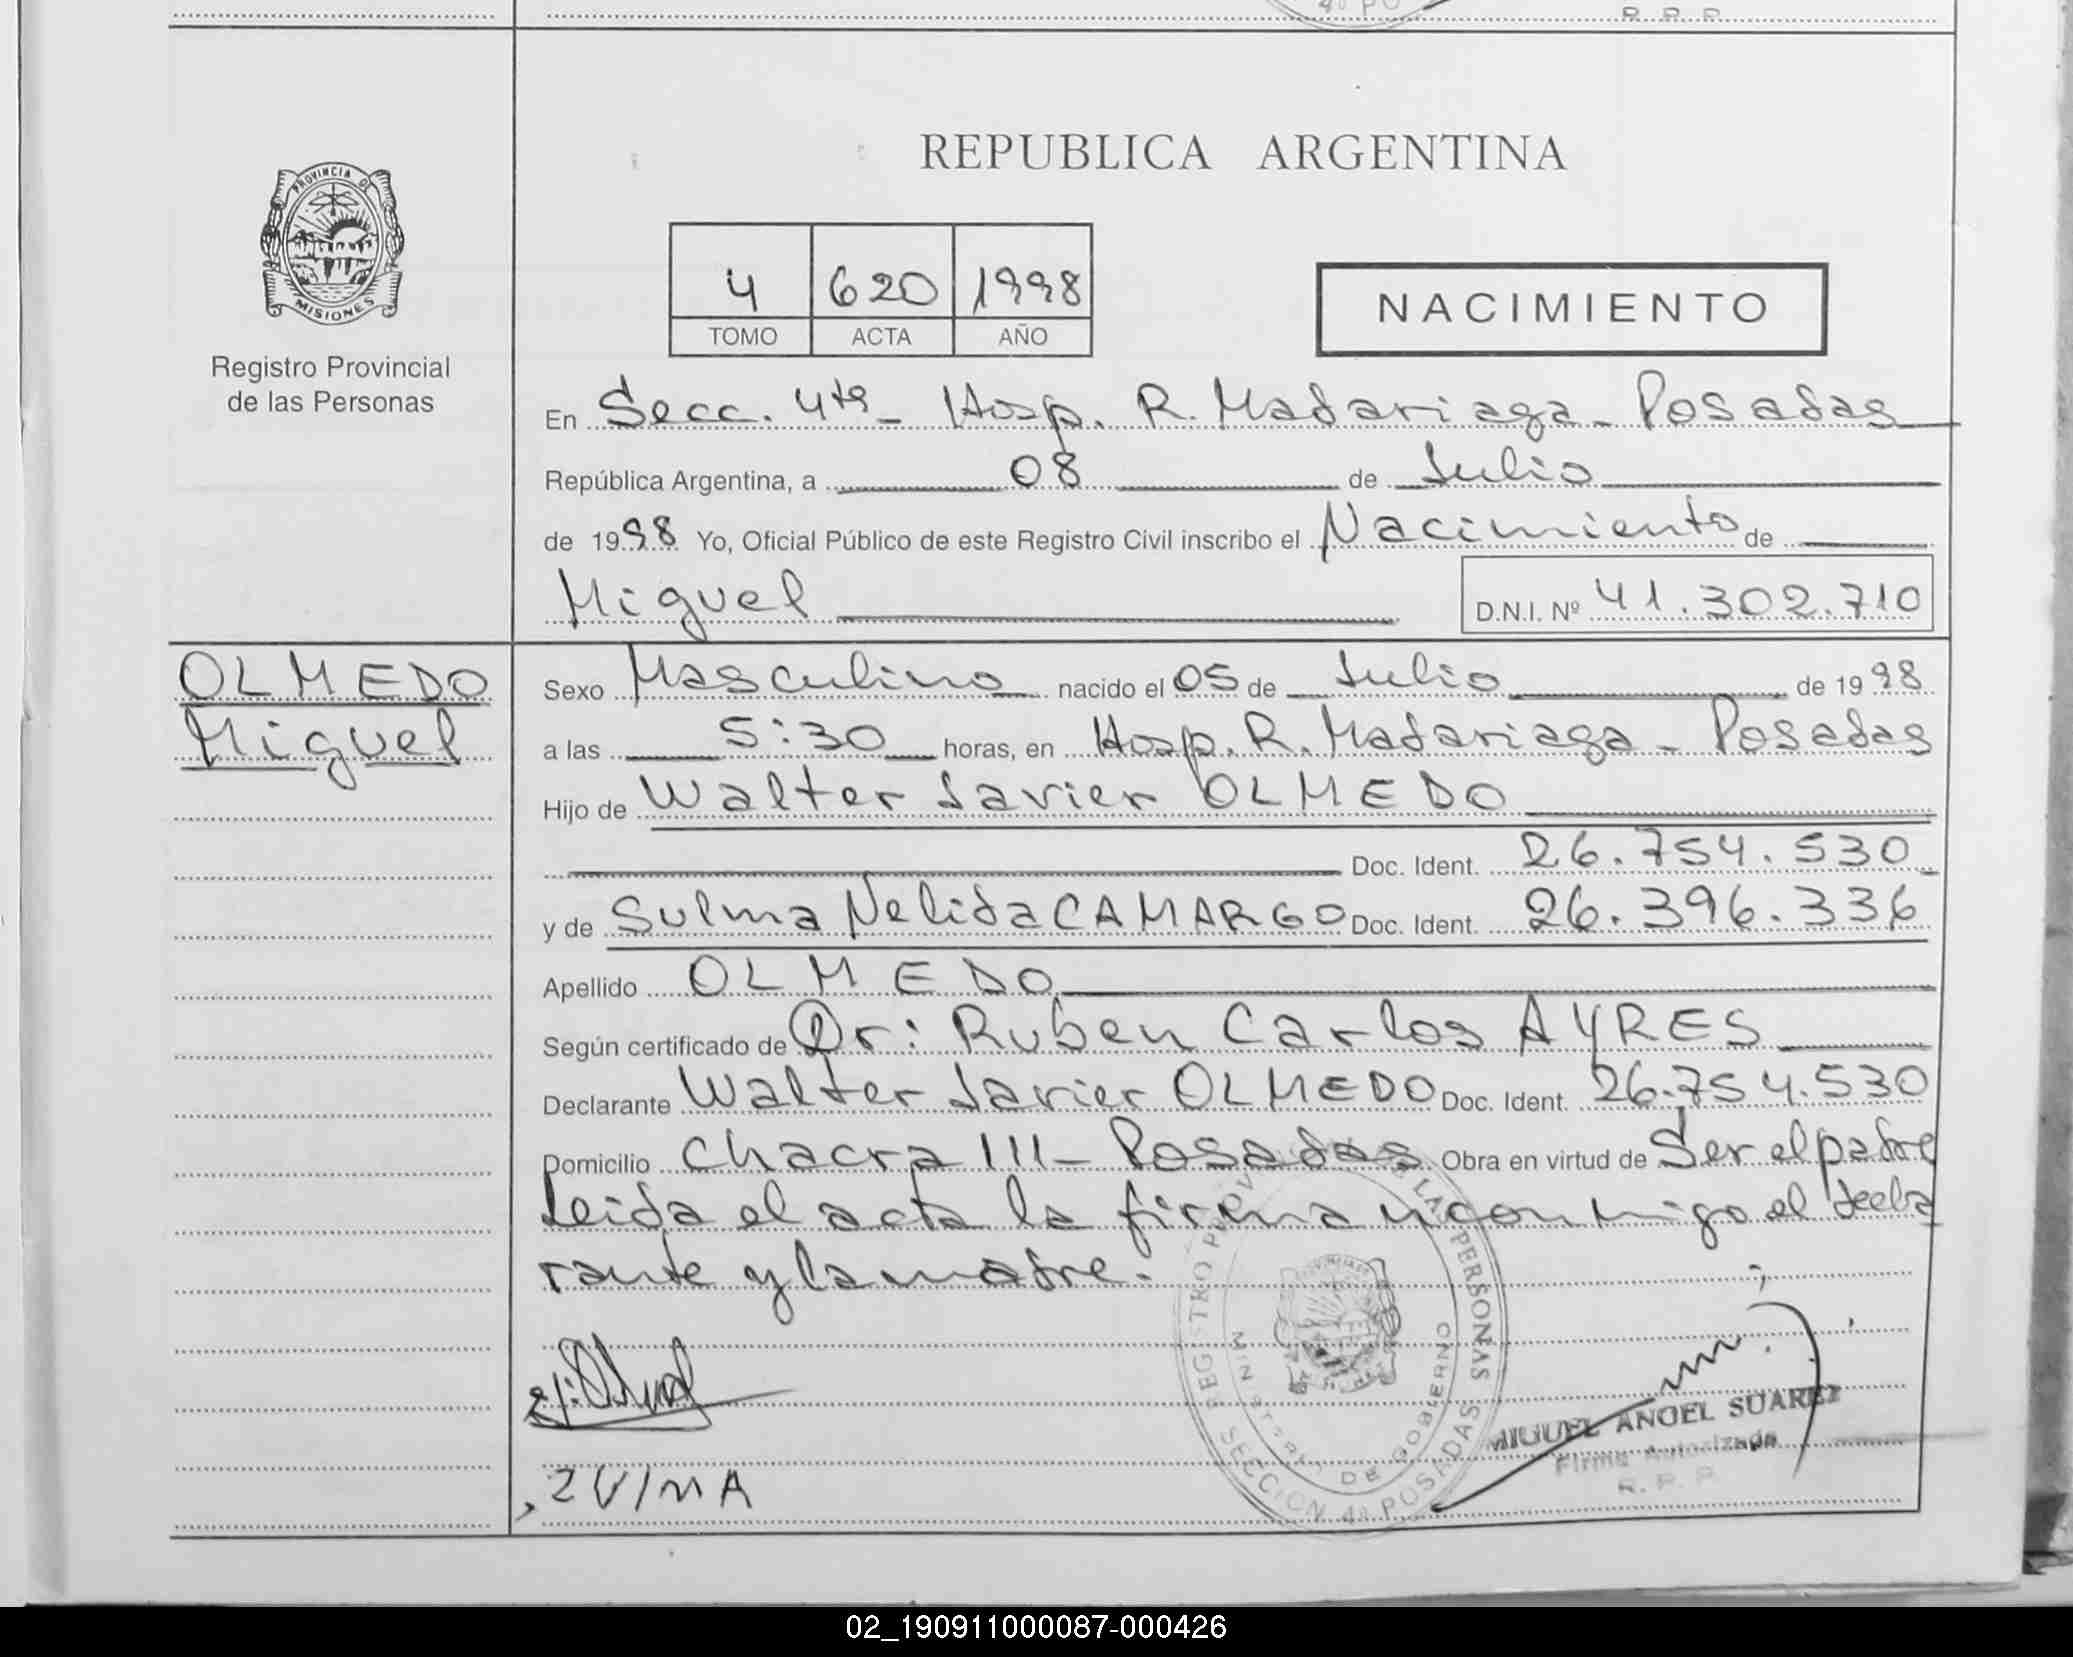 REPUBLICA ARGENTINA
PROVINCIA DE
MISIONES
Registro Provincial
de las Personas
4 620 1998
TOMO ACTA AÑO
NACIMIENTO
En Secc. 4ta - Hosp. R. Madariaga - Posadas
República Argentina, a 08 de Julio
de 1998 Yo, Oficial Público de este Registro Civil inscribo el Nacimiento de
Miguel D.N.I. Nº 41.302.710
OLMEDO
Miguel
Sexo Masculino nacido el 05 de Julio de 1998
a las 5:30 horas, en Hosp. R. Madariaga - Posadas
Hijo de Walter Javier OLMEDO
Doc. Ident. 26.754.530
y de Sulma Nelida CAMARGO Doc. Ident. 26.396.336
Apellido OLMEDO
Según certificado de Dr: Ruben Carlos AYRES
Declarante Walter Javier OLMEDO Doc. Ident. 26.754.530
Domicilio Chacra 111 - Posadas Obra en virtud de Ser el padre
Leida el acta la firma conmigo el decla
rante y la madre.
REGISTRO PROV LAS PERSONAS
MINISTERIO DE GOBIERNO
SECCION 4º POSADAS
MIGUEL ANGEL SUAREZ
Firma Autorizada
R. P. P
02_190911000087-000426